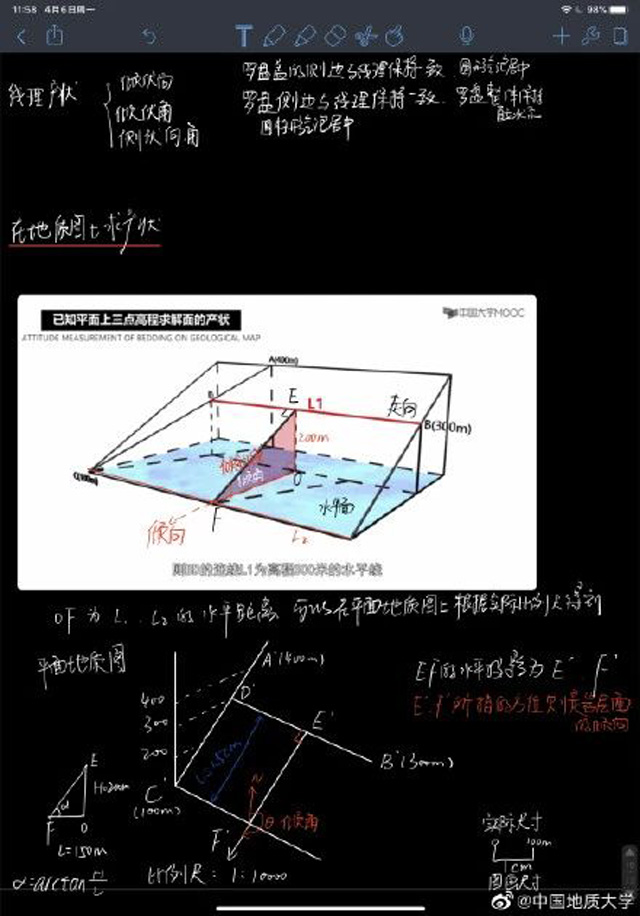 11:58 4月6日周一
98%
线理产状
倾伏向
倾伏角
侧伏向角
罗盘盖的侧边与线理保持一致
圆水泡居中
罗盘侧边与线理保持一致
罗盘整体保持
圆水泡居中
在地质图上求产状
已知平面上三点高程求解面的产状
中国大学MOOC
ATTITUDE MEASUREMENT OF BEDDING ON GEOLOGICAL MAP
A(400m)
E
L1
走向
B(300m)
200m
倾向
O
C(100m)
水平面
F
倾向
L2
则BD的连线L1为高程300米的水平线
OF为L1、L2的水平距离 可以在平面地质图上根据实际比例尺得到
平面地质图
A'(400m)
EF的水平投影为E' F'
E'F'所指的方位为倾斜岩层面
的倾向
400
D'
300
E'
200
L=1.5cm
B'(300m)
E
H=200m
α
F O
L=150m
C'
(100m)
N
θ 倾向
F'
α=arctan H/L
比例尺=1:10000
实际尺寸
0 100m
1cm
图面尺寸
@中国地质大学